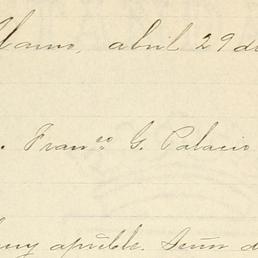 Alamo, abril 29 de
. Franco G. Palacio
uy apreble. Señor d